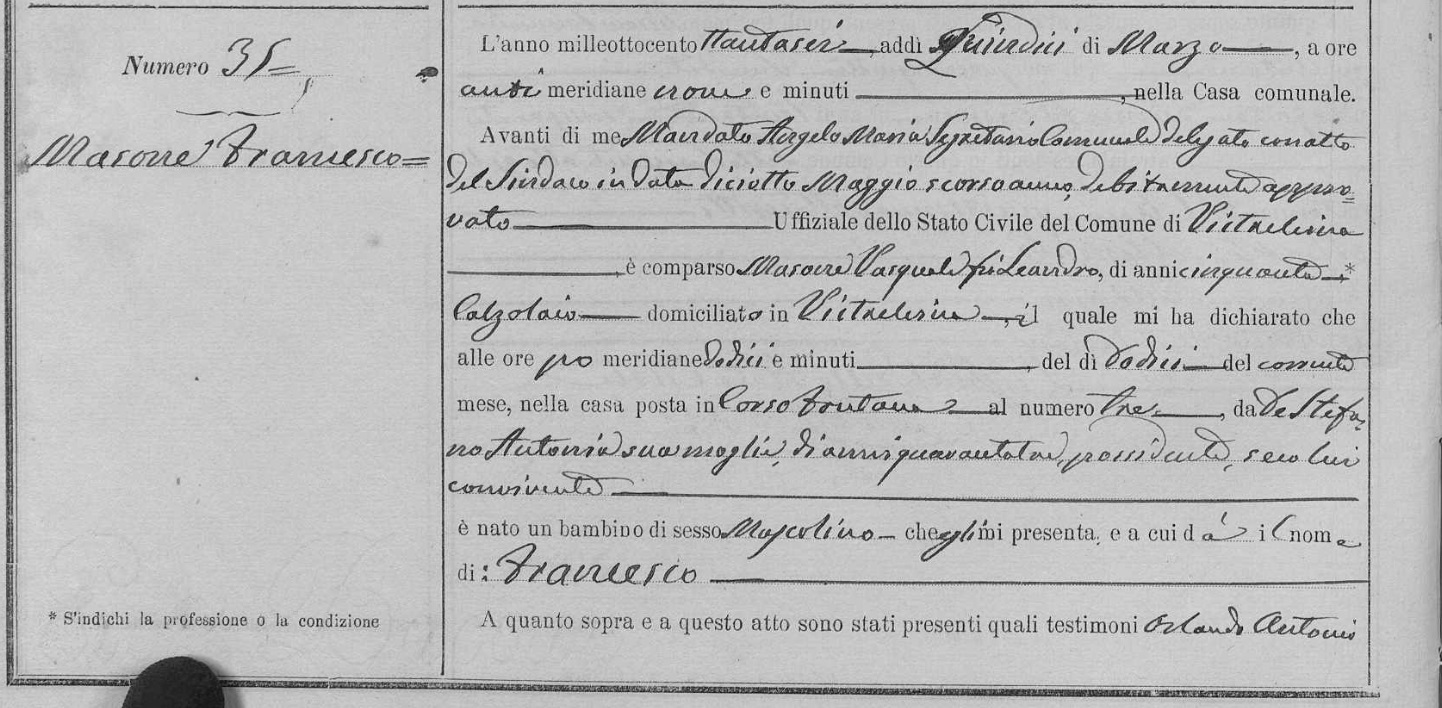 Numero 35
Masone Francesco
* S'indichi la professione o la condizione
L'anno milleottocento ttantasei, addì Quindici di Marzo, a ore
anti meridiane nove e minuti, nella Casa comunale.
Avanti di me Mandato Angelo Maria Segretario Comunale delegato con atto
del Sindaco in data diciotto Maggio scorso anno, debitamente appro=
vato Uffiziale dello Stato Civile del Comune di
è comparso Masone Pasquale fu Leandro, di anni cinquanta *
Calzolaio domiciliato in, il quale mi ha dichiarato che
alle ore po meridiane dodici e minuti, del dì dodici del corrente
mese, nella casa posta in Corso Fontana al numero tre, da De Stefa=
no Antonia sua moglie, di anni quarantatre, possidente, seco lui
convivente
è nato un bambino di sesso Mascolino che egli mi presenta, e a cui dà il nome
di: Francesco
A quanto sopra e a questo atto sono stati presenti quali testimoni Orlando Antonio